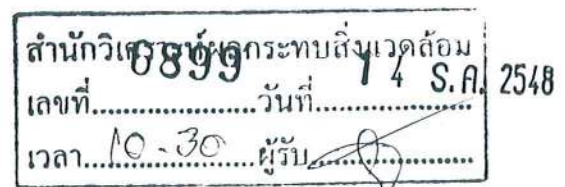 สำนักวิเคราะห์ผลกระทบสิ่งแวดล้อม
เลขที่ 6899 วันที่ 14 ธ.ค. 2548
เวลา 10-30 ผู้รับ